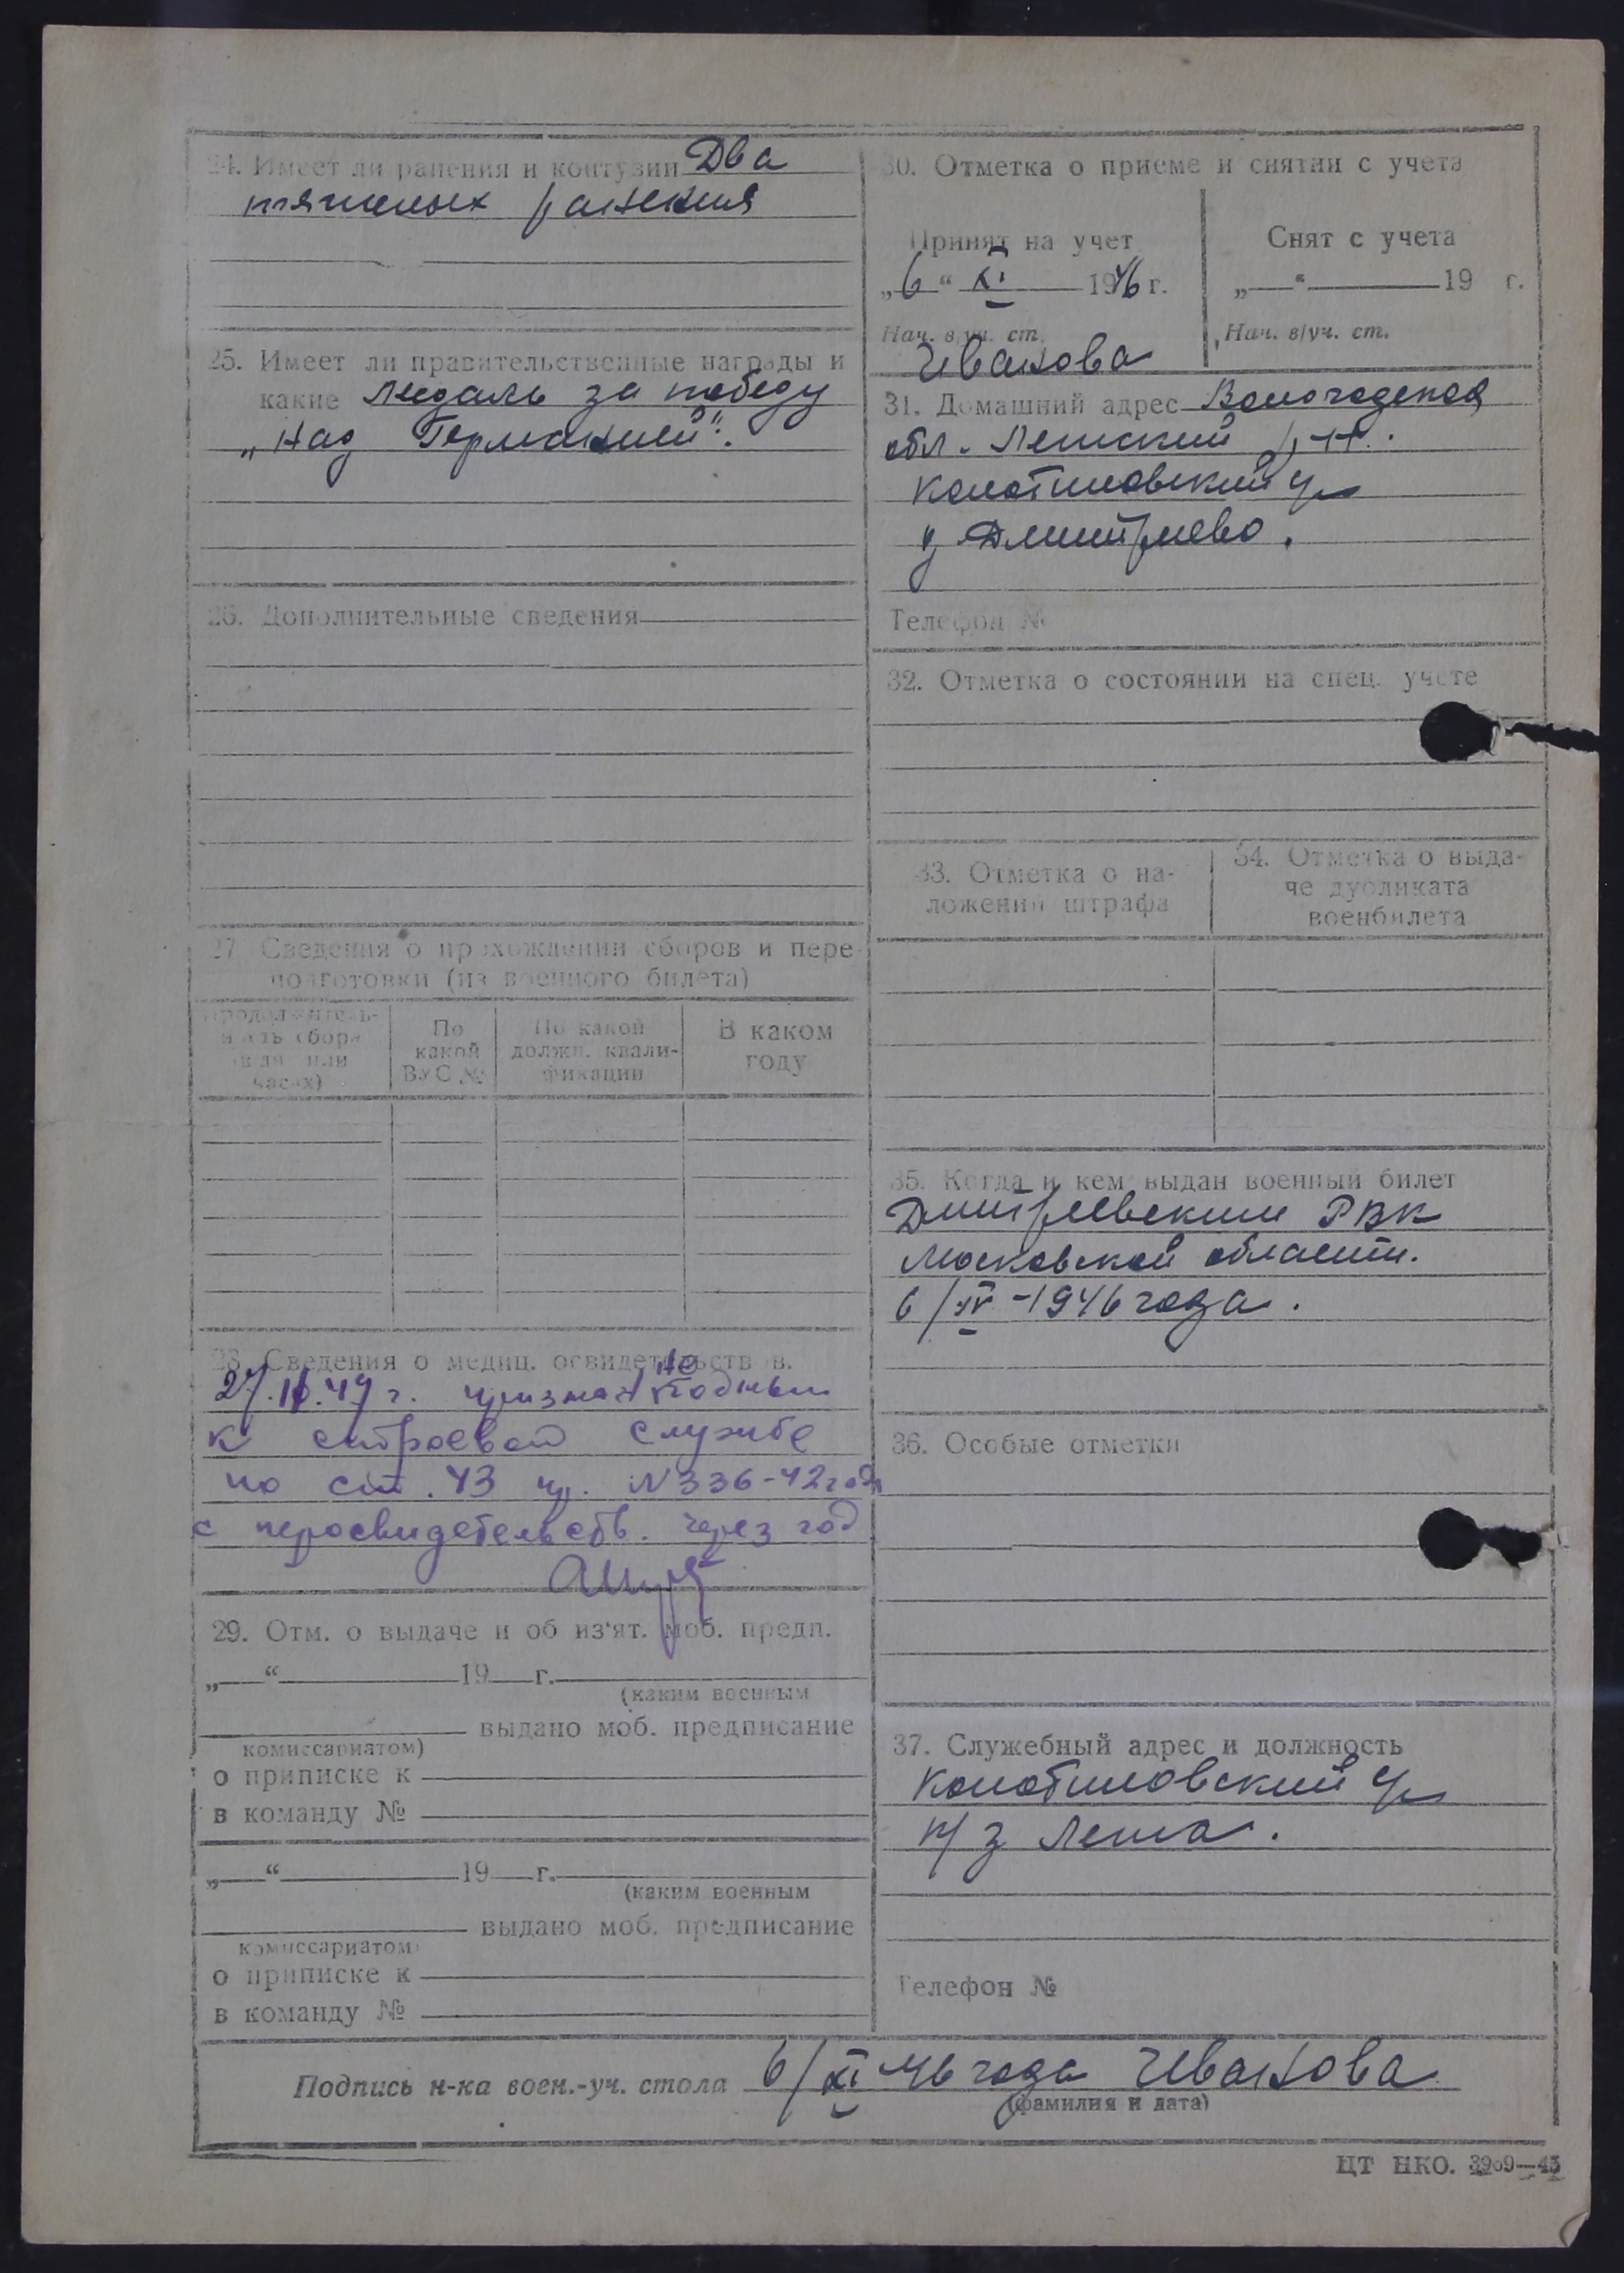 24. Имеет ли ранения и контузии Два
тяжелых ранения
25. Имеет ли правительственные награды и
какие медаль за победу
„над Германией".
26. Дополнительные сведения
27. Сведения о прохождении сборов и пере-
подготовки (из военного билета)
Продолжитель-
ность сбора
(в дн. или
часах)
По
какой
ВУС №
По какой
должн. квали-
фикации
В каком
году
28. Сведения о медиц. освидетельствов.
27. 49 г. признан не годным
к строевой службе
по ст. 43 пр. N 336-42 года
с переосвидетельств. через год
29. Отм. о выдаче и об из'ят. моб. предп.
„ “ 19 г.
(каким военным
выдано моб. предписание
комиссариатом)
о приписке к
в команду №
„ “ 19 г.
(каким военным
выдано моб. предписание
комиссариатом)
о приписке к
в команду №
30. Отметка о приеме и снятии с учета
Принят на учет
„6“ XI 1946 г.
Нач. в/уч. ст.
Иванова
Снят с учета
„ “ 19 г.
Нач. в/уч. ст.
31. Домашний адрес Вологодская
обл. Лежский р-н.
д Дмитриево.
Телефон №
32. Отметка о состоянии на спец. учете
33. Отметка о на-
ложении штрафа
34. Отметка о выда-
че дубликата
военбилета
35. Когда и кем выдан военный билет
Дмитровским РВК
Московской области.
6/IV-1946 года.
36. Особые отметки
37. Служебный адрес и должность
Телефон №
Подпись н-ка воен.-уч. стола 6/XI 46 года Иванова
(фамилия и дата)
ЦТ НКО. 3909—45